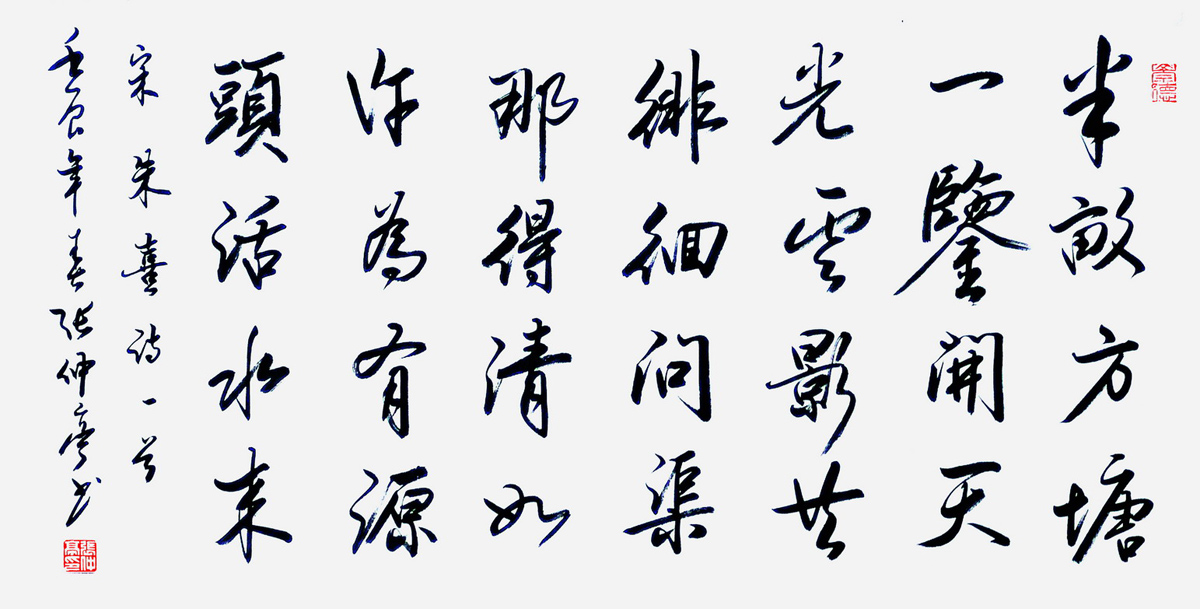 半畝方塘
一鑒開天
光雲影共
徘徊問渠
那得清如
許為有源
頭活水来
宋朱熹诗一首
壬辰年春张仲亭书
張仲亭印